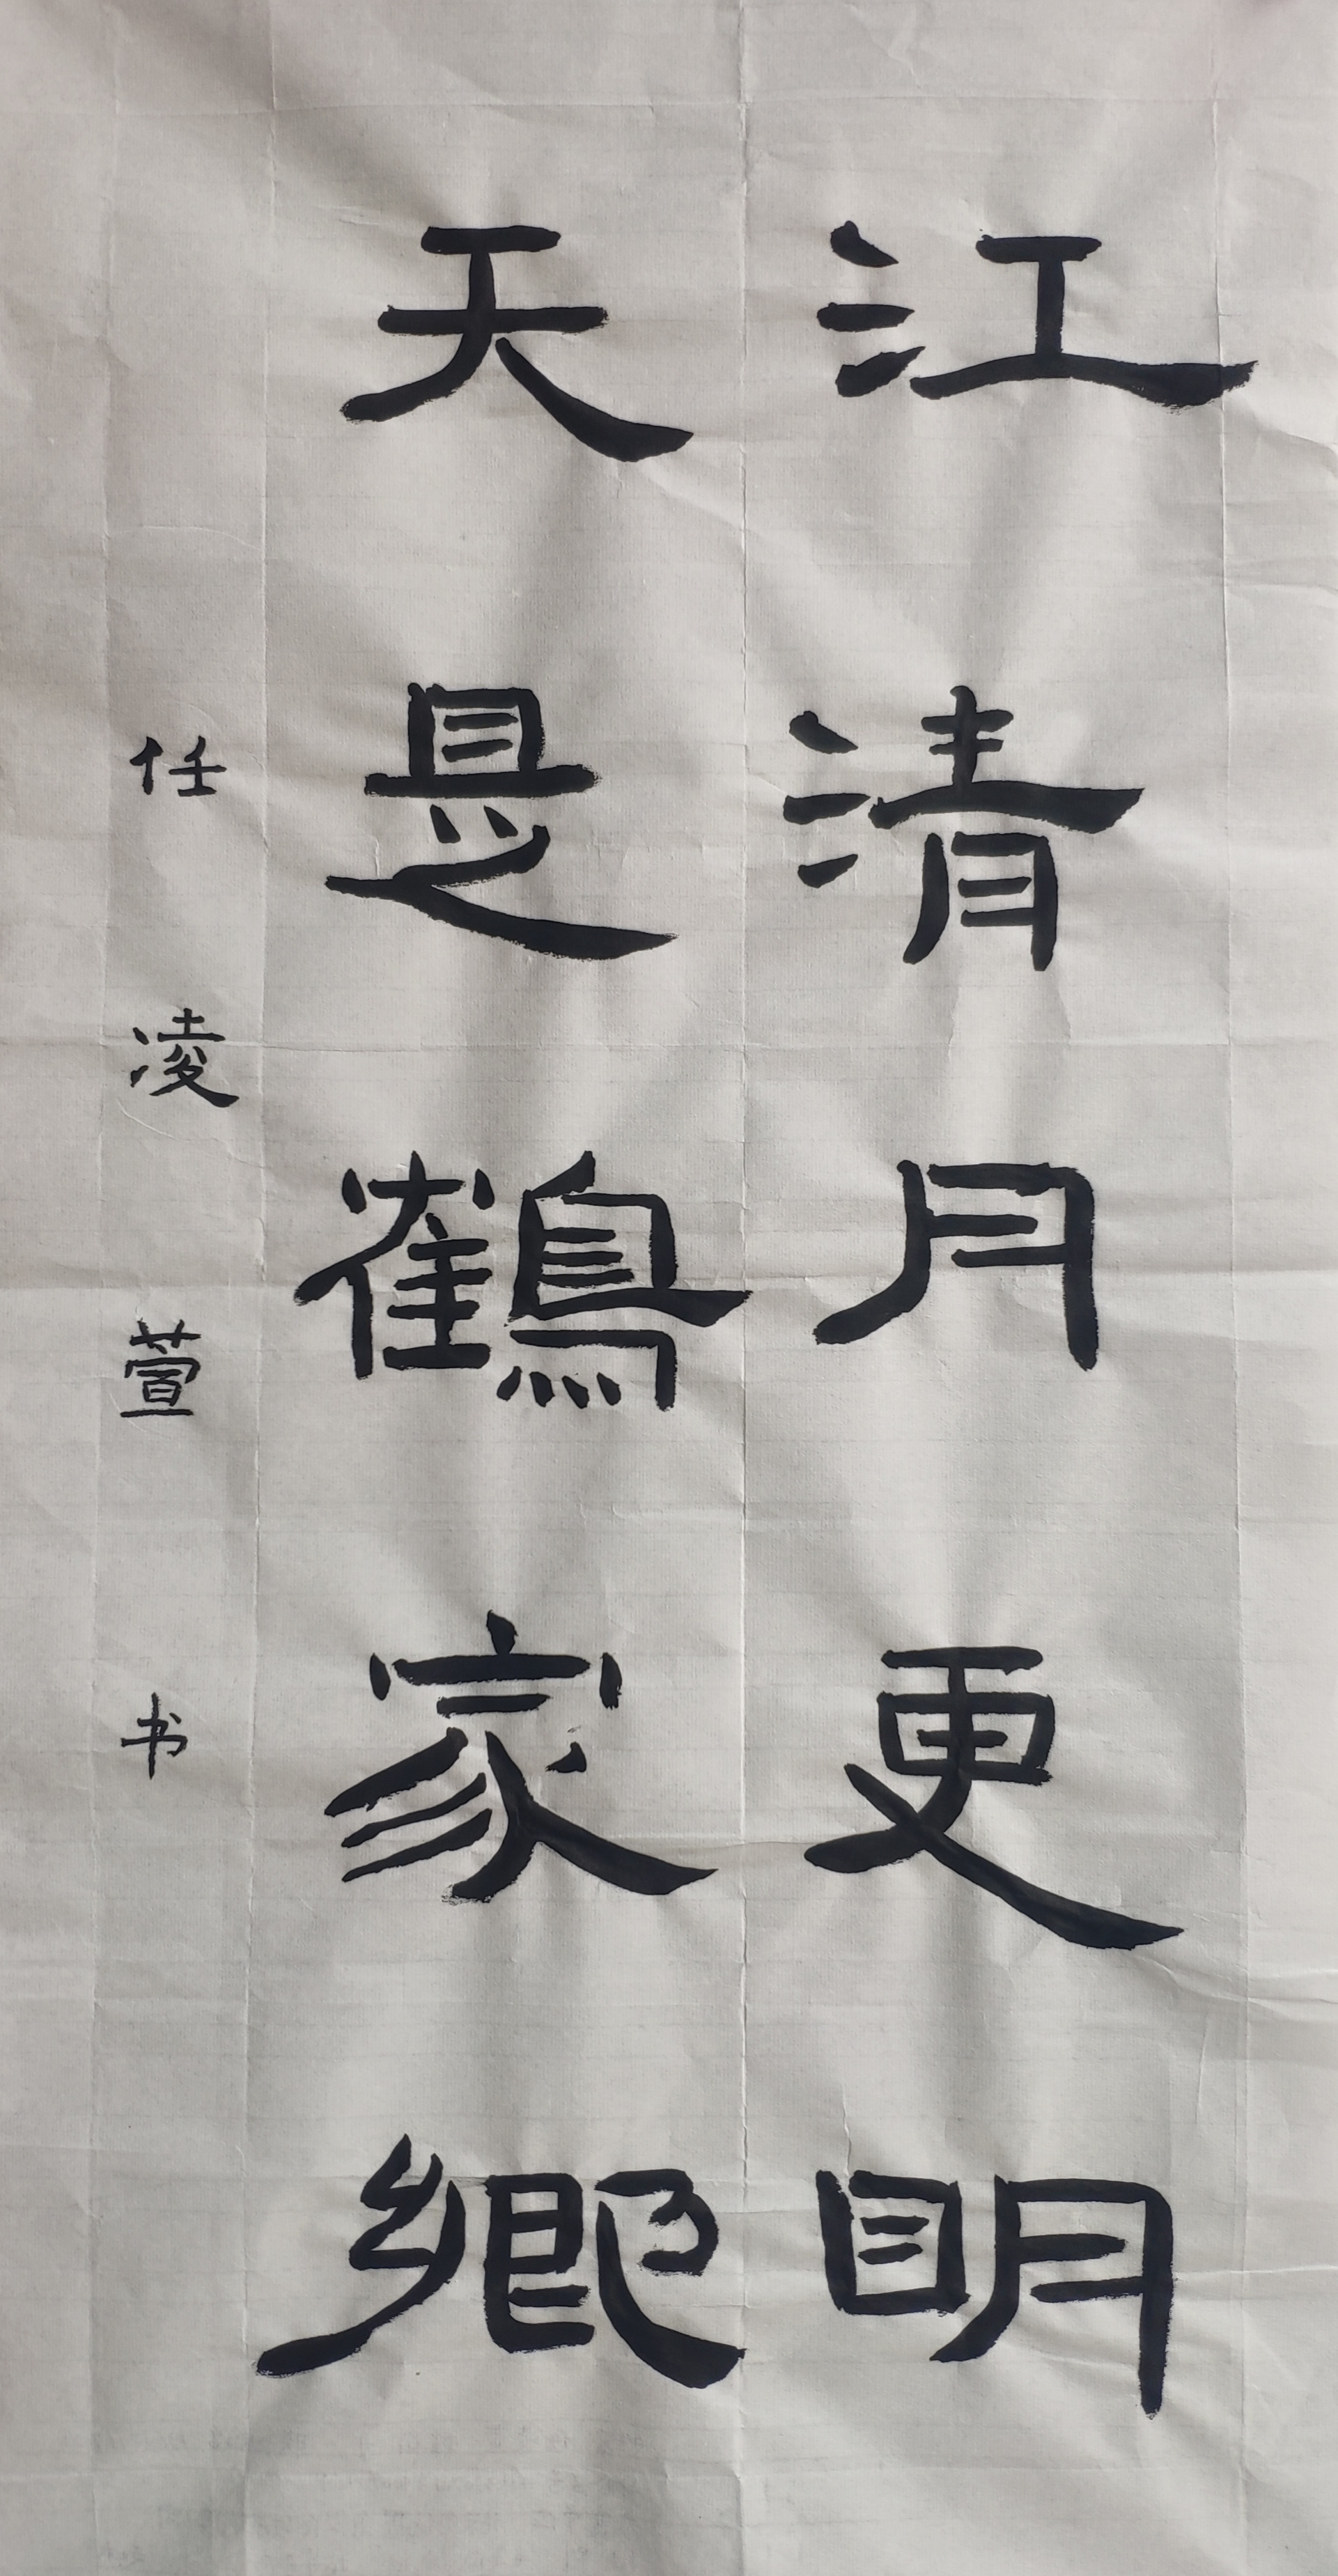 江清月更明
天是鶴家鄉
任凌萱书